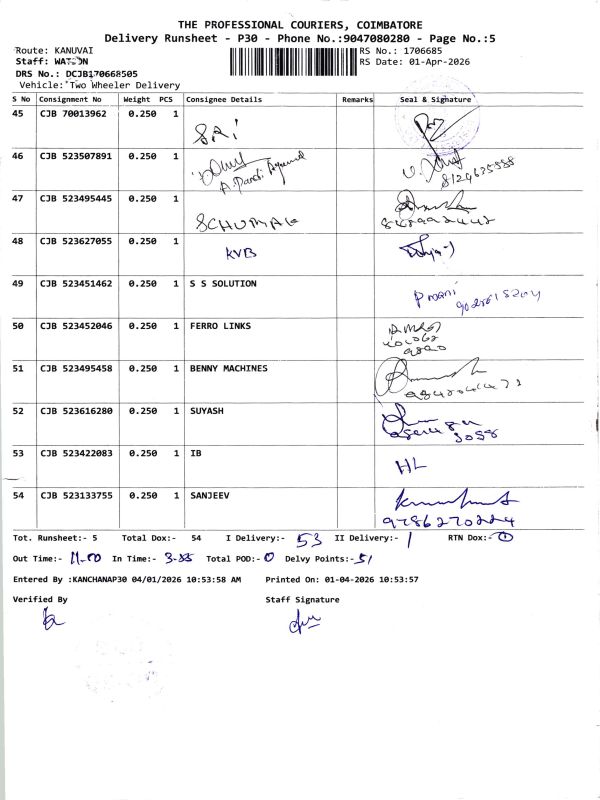 THE PROFESSIONAL COURIERS, COIMBATORE
Delivery Runsheet - P30 - Phone No.:9047080280 - Page No.:5
Route: KANUVAI
RS No.: 1706685
Staff: WATSON
RS Date: 01-Apr-2026
DRS No.: DCJB170668505
Vehicle: Two Wheeler Delivery
S No Consignment No Weight PCS Consignee Details Remarks Seal & Signature
45 CJB 70013962 0.250 1 SRI
46 CJB 523507891 0.250 1
47 CJB 523495445 0.250 1 SCHUMAG
48 CJB 523627055 0.250 1 KVB
49 CJB 523451462 0.250 1 S S SOLUTION
50 CJB 523452046 0.250 1 FERRO LINKS
51 CJB 523495458 0.250 1 BENNY MACHINES
52 CJB 523616280 0.250 1 SUYASH
53 CJB 523422083 0.250 1 IB HL
54 CJB 523133755 0.250 1 SANJEEV
9786270224
Tot. Runsheet:- 5 Total Dox:- 54 I Delivery:- 53 II Delivery:- 1 RTN Dox:- 0
Out Time:- 11-00 In Time:- Total POD:- 0 Delvy Points:- 51
Entered By :KANCHANAP30 04/01/2026 10:53:58 AM Printed On: 01-04-2026 10:53:57
Verified By Staff Signature